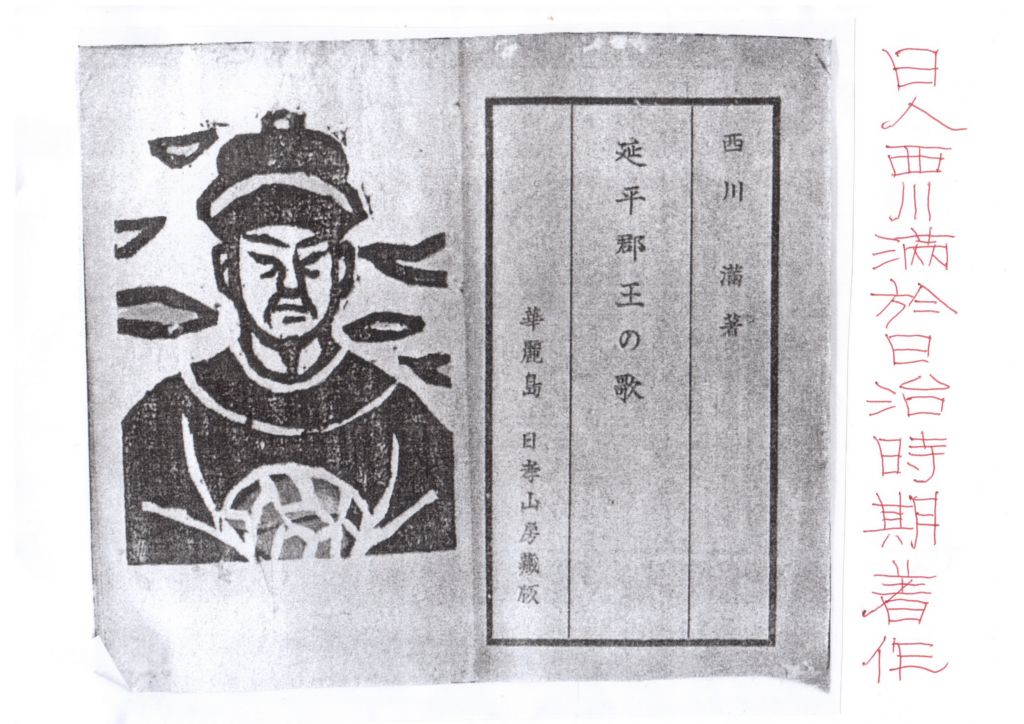 日人西川滿於日治時期著作
西川 滿著
延平郡王の歌
華麗島 日孝山房藏版